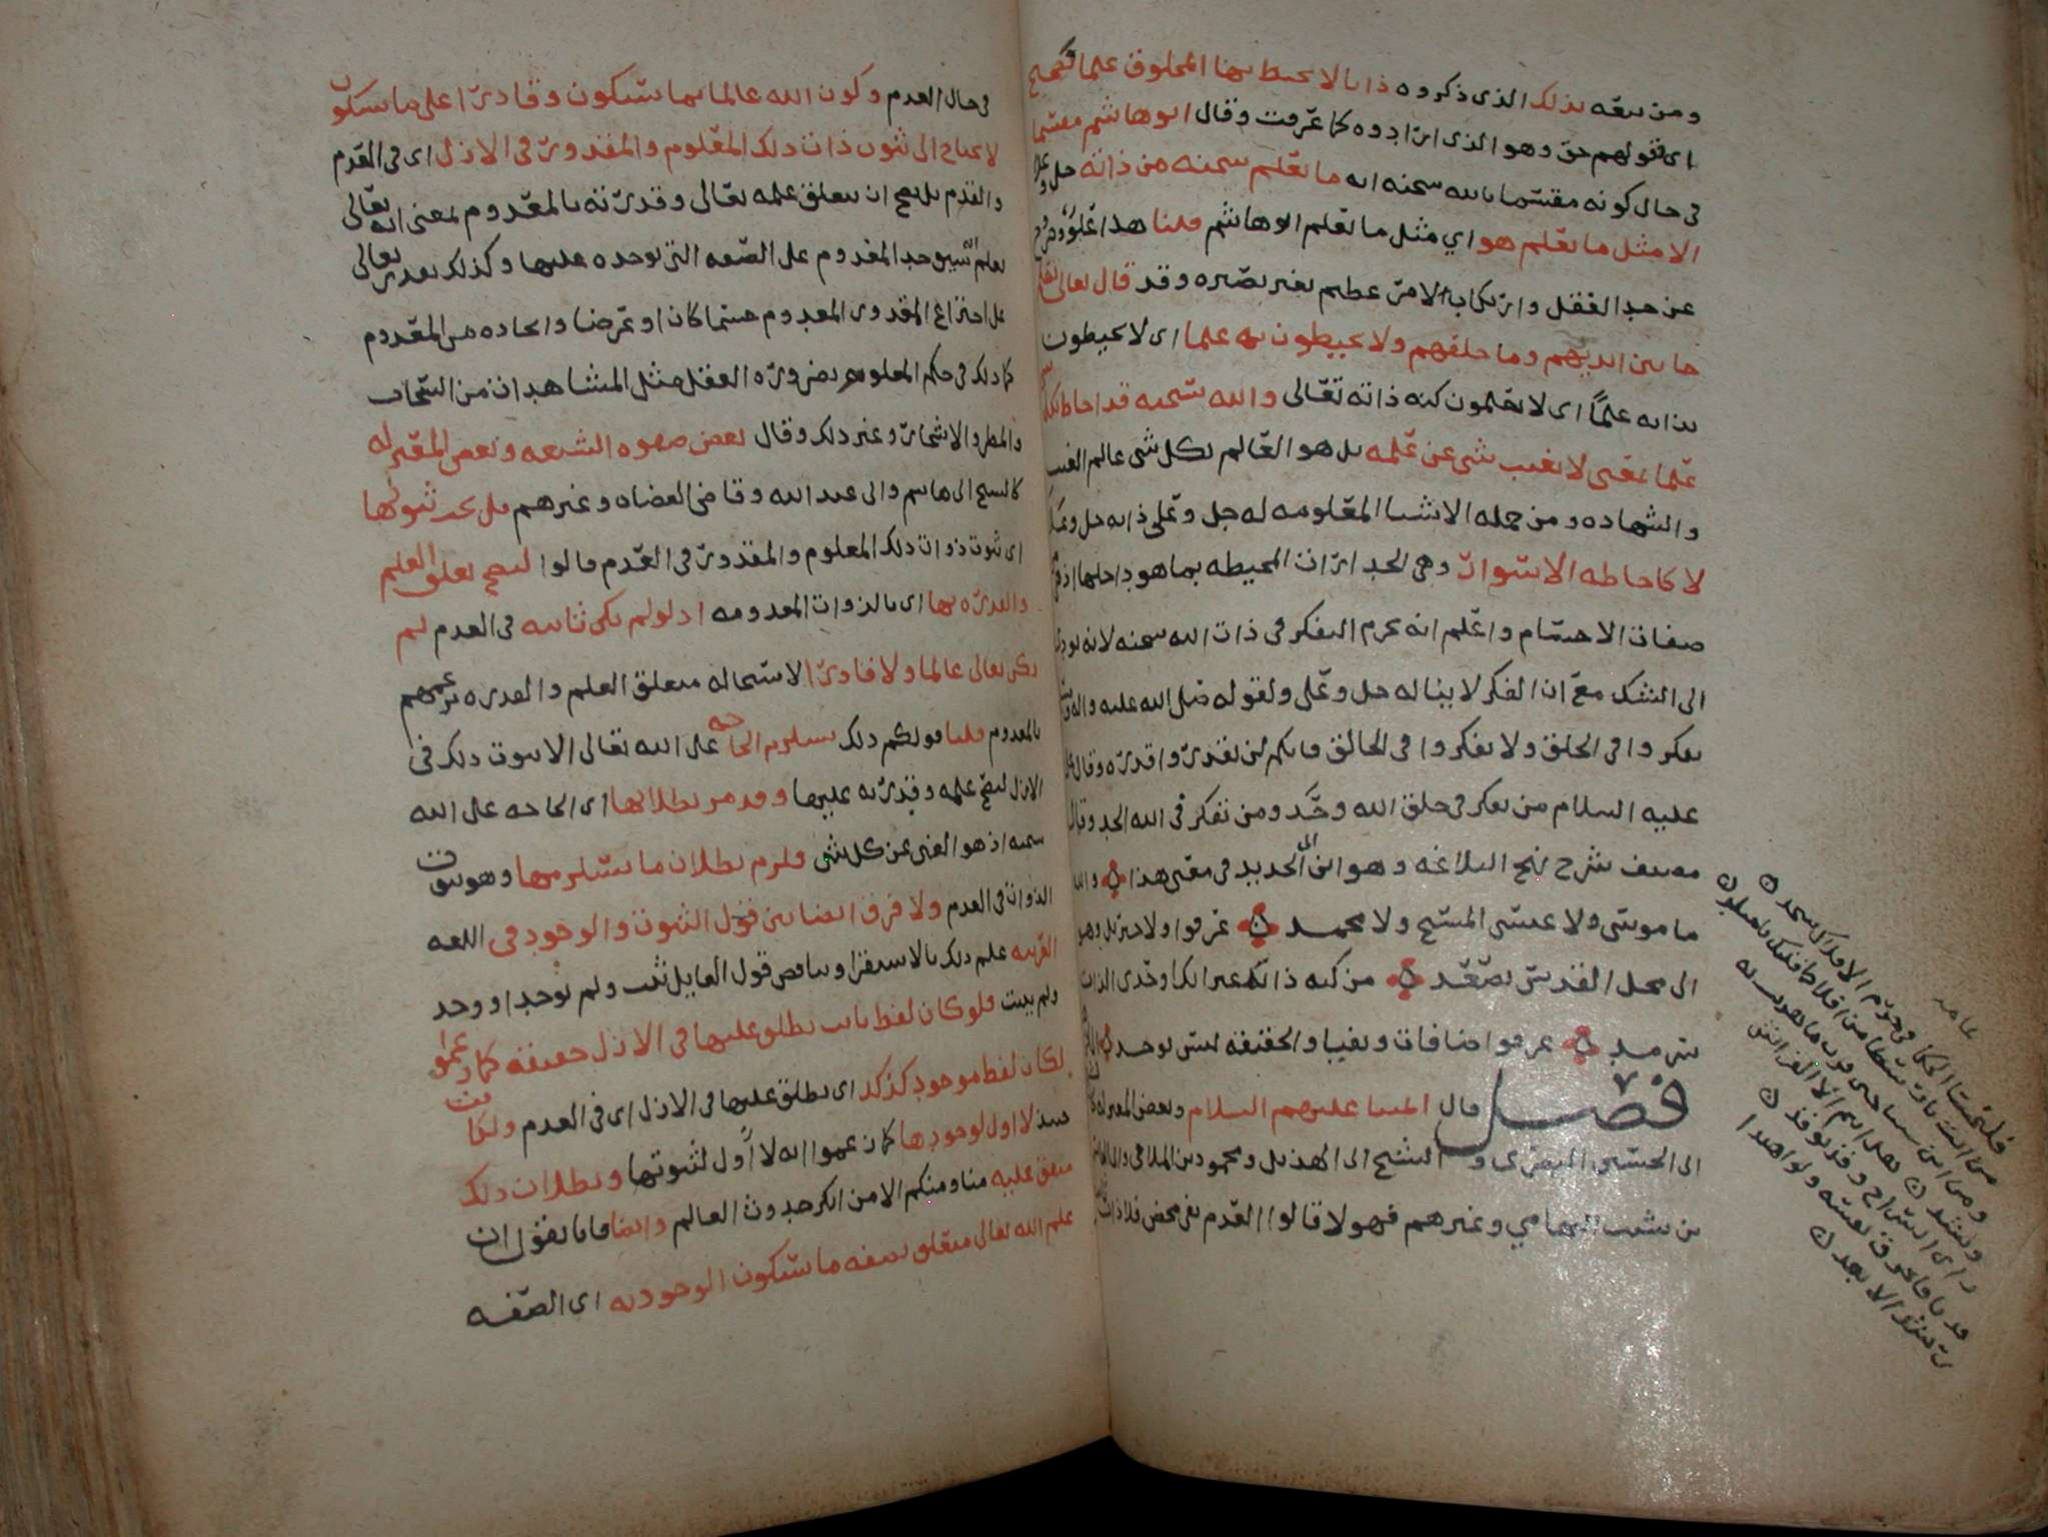 ومن تبعه بذلك الذي ذكروه ذاتا لا يحيط بها المخلوق علما فصحيح
اى فقولهم حق وهو الذي ارادوه كما عرفت وقال ابو هاشم مقسما
في حال كونه مقسما بالله سبحنه انه ما يعلم سبحنه من ذاته جل وعلا
الا مثل ما يعلم هو اي مثل ما يعلم ابو هاشم قلنا هذا غلو وخروج
عن حد العقل وارتكاب لامر عظيم بغير بصيره وقد قال تعالى يعلم
ما بين ايديهم وما خلفهم ولا يحيطون به علما اى لا يحيطون
بذاته علما اى لا يعلمون كنه ذاته تعالى والله سبحنه قد احاط بكل شي
علما بمعنى لا يغيب شي عن علمه بل هو العالم بكل شي عالم الغيب
والشهاده ومن جمله الاشيا المعلومه له جل وعلى ذاته جل وعلا
لا كاحاطه الاسوار وهي الجدارات المحيطه بما هو داخلها اذ هي
صفات الاجسام واعلم انه يحرم التفكر في ذات الله سبحنه لانه يودي
الى الشك مع ان الفكر لا يناله جل وعلى ولقوله صلى الله عليه واله
تفكروا في الخلق ولا تفكروا في الخالق فانكم لن تقدروا قدره وقال
عليه السلام من تفكر في خلق الله وحد ومن تفكر في الله الحد وقال
مصنف شرح نهج البلاغه وهو ابن ابى الحديد في معنى هذا والله
ما موسى ولا عيسى المسيح ولا محمد عرفوا ولا جبريل وهو
الى محل القدس يصعد من كنه ذاتك غير انك اوحدى الذات
سرمد عرفوا اضافات ونفيا والحقيقه ليس توجد
فصل قال ايمتنا عليهم السلام وبعض المعتزله
ابى الحسين البصري و الشيخ ابى الهذيل ومحمود بن الملاحمي وابى القاسم
بن شبيب التهامي وغيرهم فهولا قالوا العدم نفي محض فلا ذات
فلتخسا الحكما في حرم الافلاك سجد
من انت يا رسطا ومن افلاط قبلك يا مبلد
ومن ابن سينا حين قرب ما بنيت له
وشيد هل انتم الا الفراش
راى السراج وقد توقد
فدنا فاحرق نفسه ولو اهتدا
رشدا لابعد
في حال العدم وكون الله عالما بما سيكون وقادرا على ما سيكون
لا يحتاج الى ثبوت ذات ذلك المعلوم والمقدور في الازل اى في القدم
والقدم بل يصح ان يتعلق علمه تعالى وقدرته بالمعدوم بمعنى انه تعالى
يعلم انه سيوجد المعدوم على الصفه التي يوجده عليها وكذلك يقدر تعالى
على اختراع المقدور المعدوم جسما كان او عرضا وايجاده من المعدوم
كما ذلك في حكم المعلوم بضروره العقل مثل المشاهدات من السحاب
والمطر والاشجار وغير ذلك وقال بعض صفوه الشيعه وبعض المعتزله
كالشيخ ابى هاشم وابى عبد الله وقاضي القضاه وغيرهم بل يجب ثبوتها
اى ثبوت ذوات ذلك المعلوم والمقدور في العدم قالوا ليصح تعلق العلم
والقدره بها اى بالذوات المعدومه اذ لو لم تكن ثابته في العدم لم
يكن تعالى عالما ولا قادرا لاستحاله تعلق العلم والقدره بزعمهم
بالمعدوم قلنا قولكم ذلك يستلزم الحاجه على الله تعالى الا ثبوت ذلك في
الازل ليصح علمه وقدرته عليها وقد مر بطلانها اى الحاجه على الله
سبحنه اذ هو الغني عن كل شي ولزم بطلان ما يستلزمها وهو ثبوت
الذوات في العدم ولا فرق ايضا بين قول الثبوت والوجود في اللغه
العربيه علم ذلك بالاستقرا وتناقض قول القايل ثبت ولم يوجد او وجد
ولم يثبت فلو كان لفظ ثابت يطلق عليها في الازل حقيقه كما زعموا
لكان لفظ موجود كذلك اى يطلق عليها في الازل اى في العدم ولكانت
حينيذ لا اول لوجودها كما زعموا انه لا اول لثبوتها وبطلان ذلك
متفق عليه منا ومنكم الا من انكر حدوث العالم وايضا فانا نقول ان
علم الله تعالى متعلق بصفه ما سيكون الوجود به اى الصفه